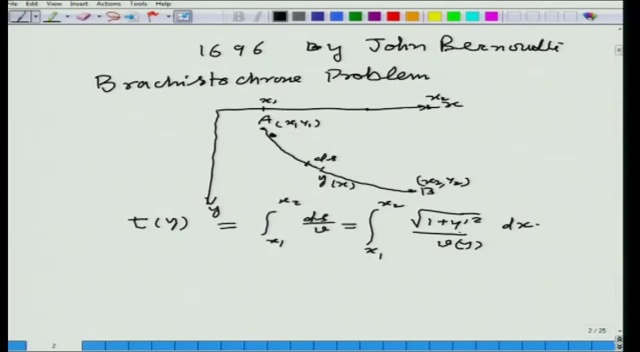 File Edit View Insert Actions Tools Help
1696 By John Bernoulli
Brachistochrone Problem
x₁ x₂ x
A (x₁, y₁)
ds
y(x)
(x₂, y₂)
B
y
t(y) = ∫_{x₁}^{x₂} ds/v = ∫_{x₁}^{x₂} √(1+y'²)/v(y) dx.
2 / 25
2